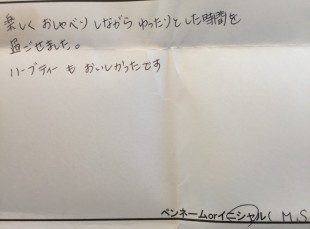 楽しく おしゃべり しながら ゆったりとした時間を
過ごせました。
ハーブティー も おいしかったです
ペンネームorイニシャル( M.S